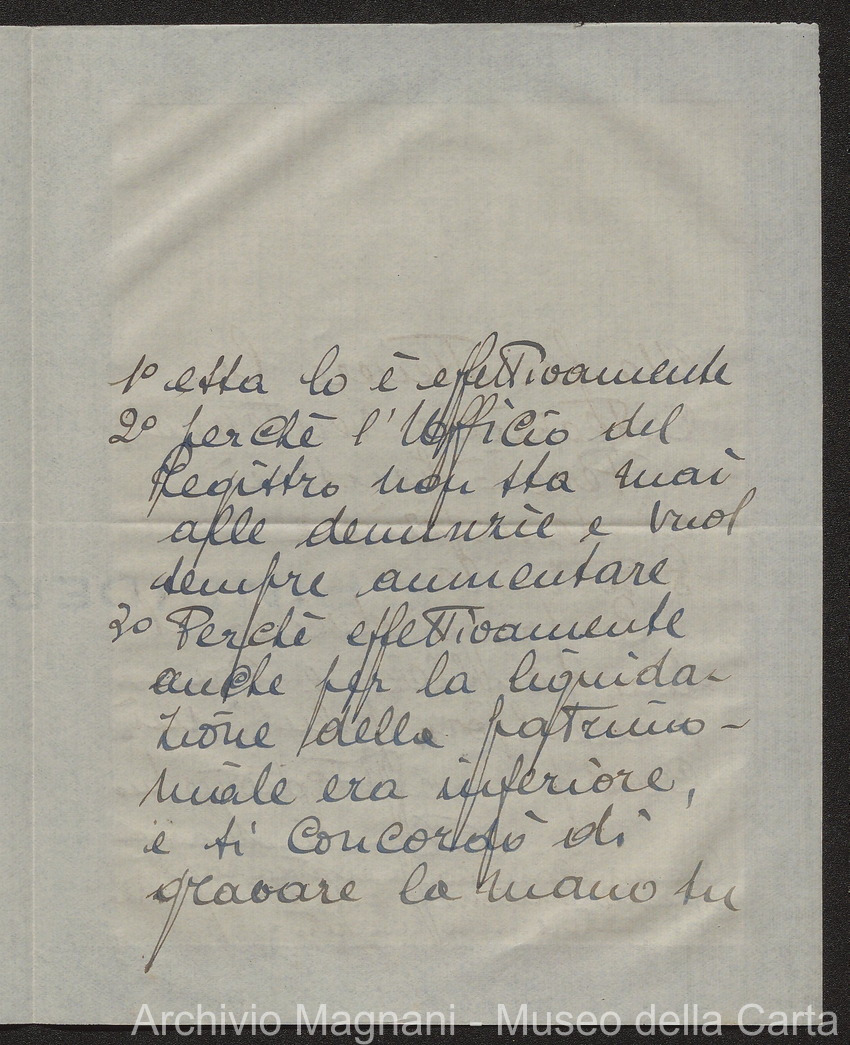 1º essa lo è effettivamente
2º perchè l'Ufficio del
Registro non sta mai
alle denunzie e vuol
sempre aumentare
3º Perchè effettivamente
anche per la liquida-
zione della patrimo-
niale era inferiore,
e si concordò di
gravare la mano su
Archivio Magnani - Museo della Carta